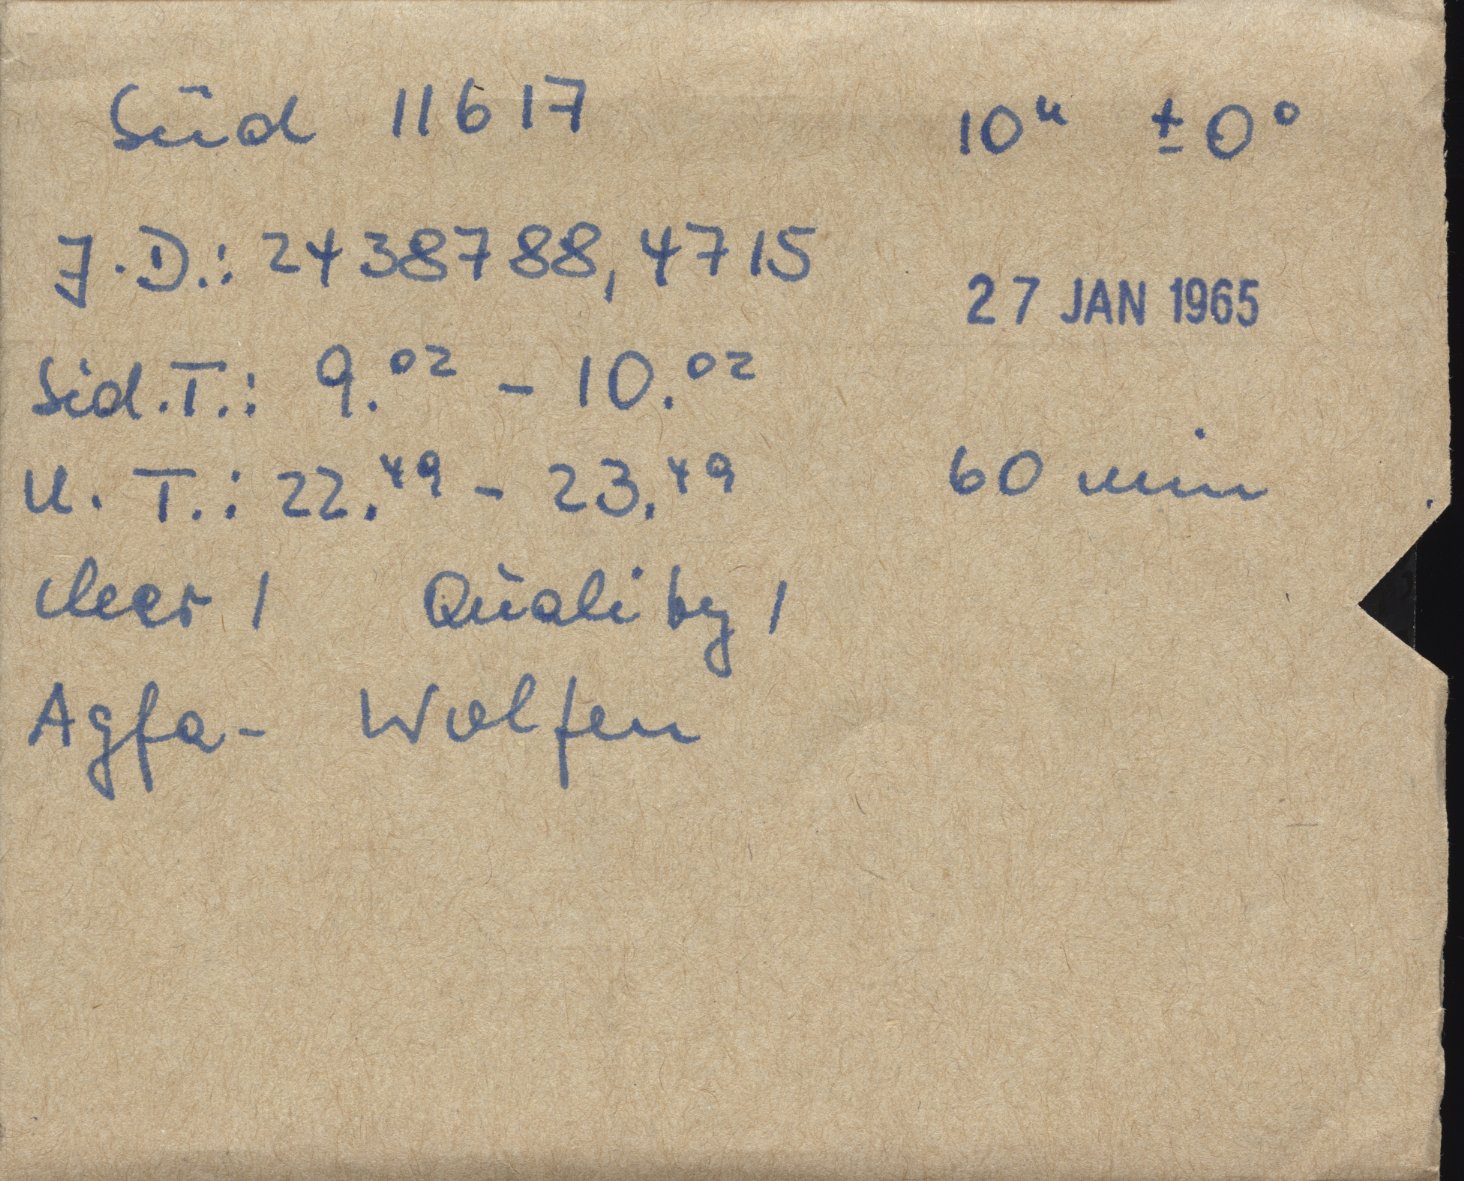 Süd 11617 10ʰ ±0°
J.D.: 2438788,4715
27 JAN 1965
Sid.T.: 9.⁰² - 10.⁰²
U.T.: 22.⁴⁹ - 23.⁴⁹ 60 min
clear 1 Quality 1
Agfa- Wolfen